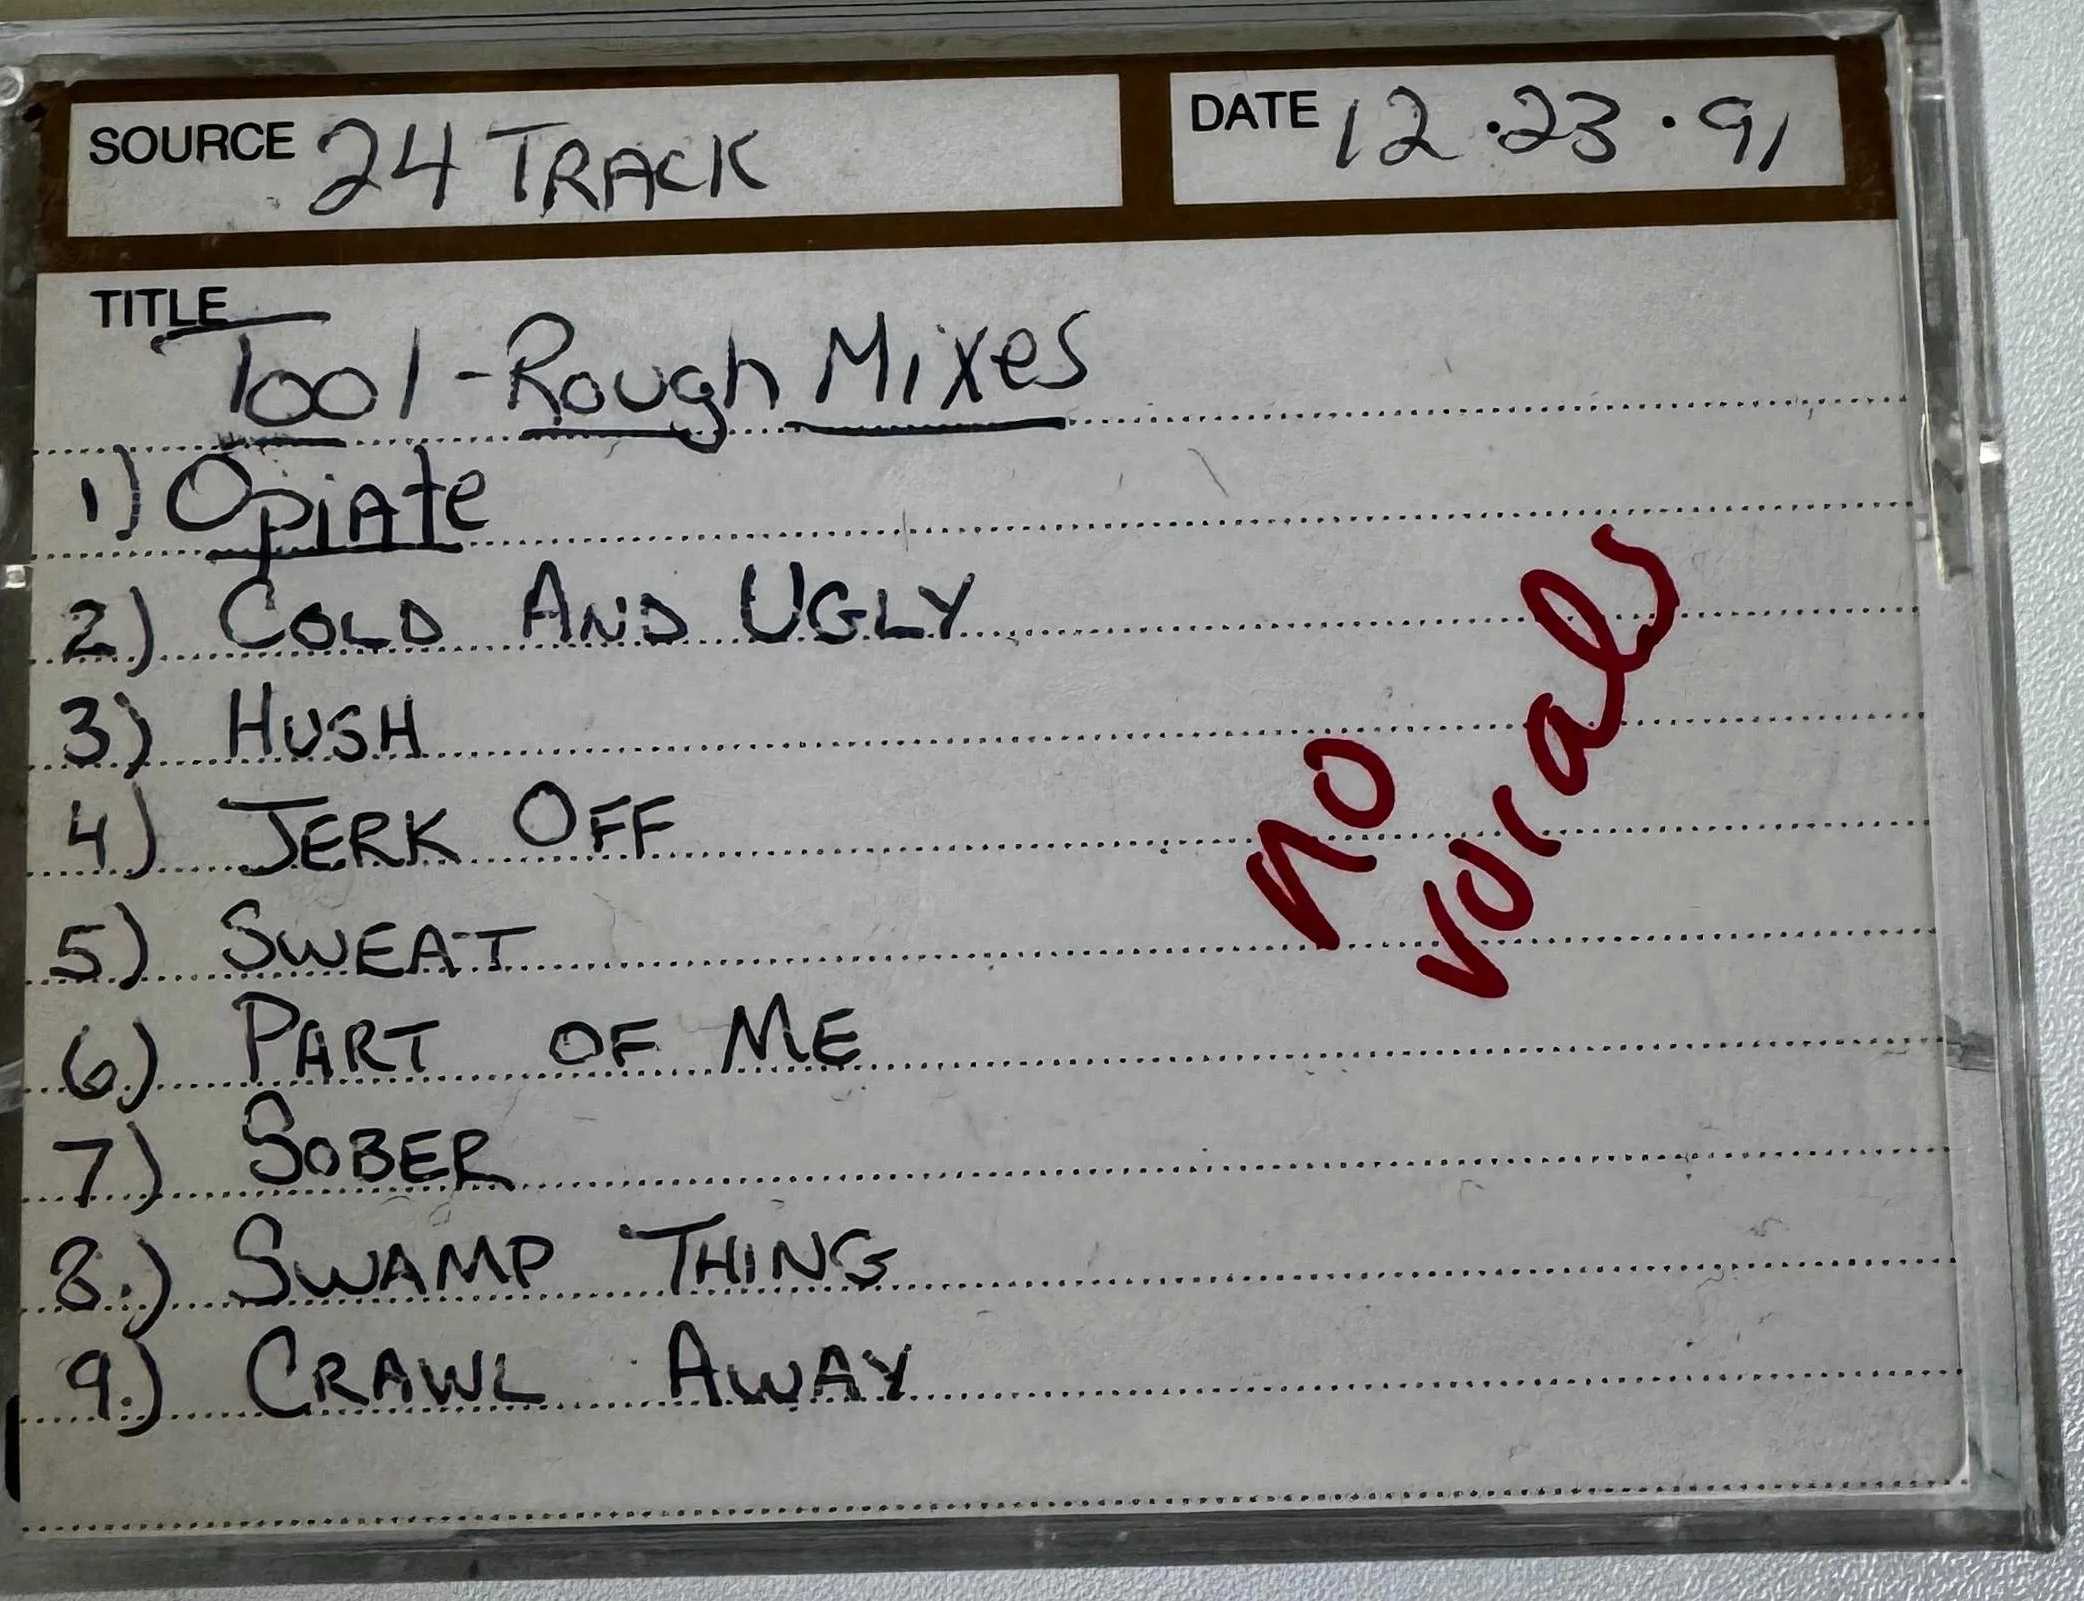 SOURCE 24 TRACK
DATE 12·23·91
TITLE
Tool-Rough Mixes
1) OpiAte
2) COLD AND UGLY
3) HUSH
4) JERK OFF
5) SWEAT
6) PART OF ME
7) SOBER
8.) SWAMP THING
9.) CRAWL AWAY
no
vocals